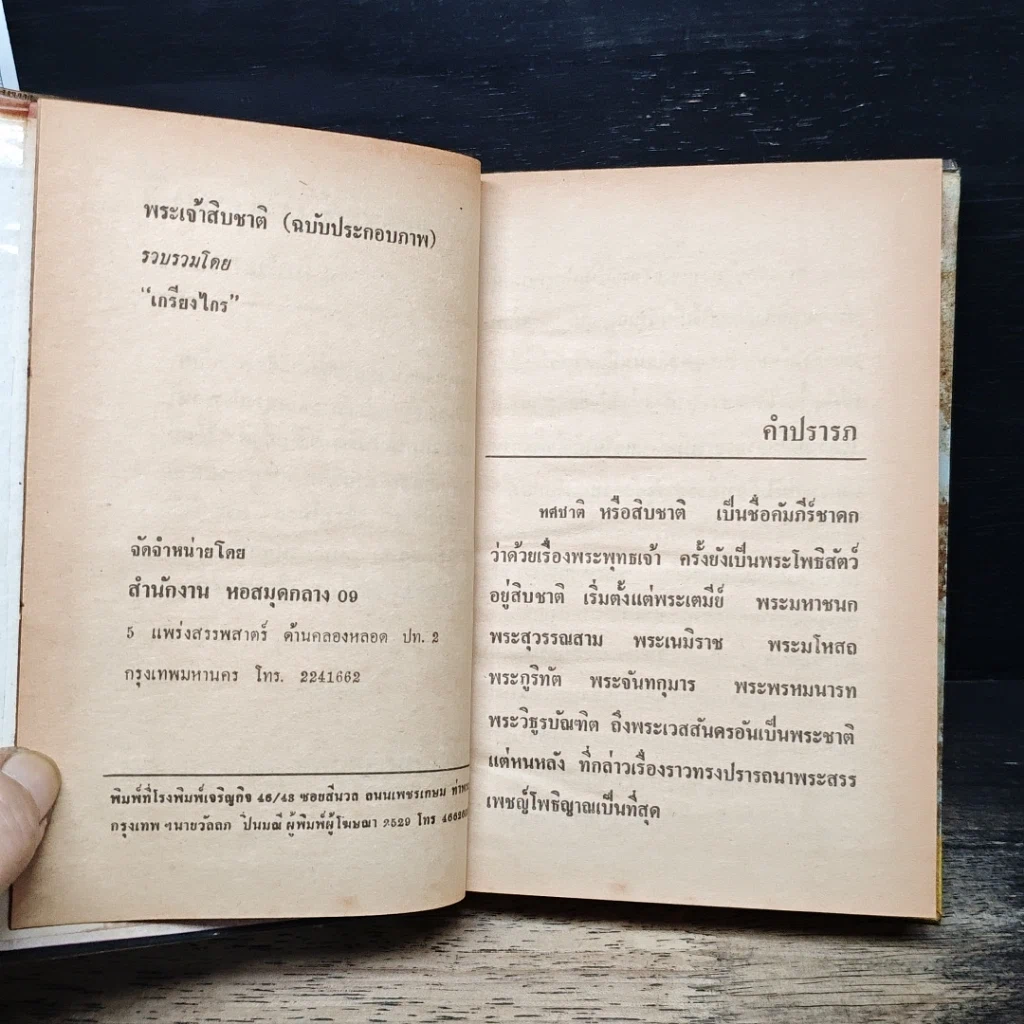 พระเจ้าสิบชาติ (ฉบับประกอบภาพ)
รวบรวมโดย
“เกรียงไกร”
จัดจำหน่ายโดย
สำนักงาน หอสมุดกลาง 09
5 แพร่งสรรพสาตร์ ด้านคลองหลอด ปท. 2
กรุงเทพมหานคร โทร. 2241662
พิมพ์ที่โรงพิมพ์เจริญกิจ 46/43 ซอยสีนวล ถนนเพชรเกษม
กรุงเทพ ฯ นายวัลลภ ปิ่นมณี ผู้พิมพ์ผู้โฆษณา 2529 โทร
คำปรารภ
ทศชาติ หรือสิบชาติ เป็นชื่อคัมภีร์ชาดก
ว่าด้วยเรื่องพระพุทธเจ้า ครั้งยังเป็นพระโพธิสัตว์
อยู่สิบชาติ เริ่มตั้งแต่พระเตมีย์ พระมหาชนก
พระสุวรรณสาม พระเนมิราช พระมโหสถ
พระภูริทัต พระจันทกุมาร พระพรหมนารท
พระวิธูรบัณฑิต ถึงพระเวสสันดรอันเป็นพระชาติ
แต่หนหลัง ที่กล่าวเรื่องราวทรงปรารถนาพระสรร
เพชญ์โพธิญาณเป็นที่สุด